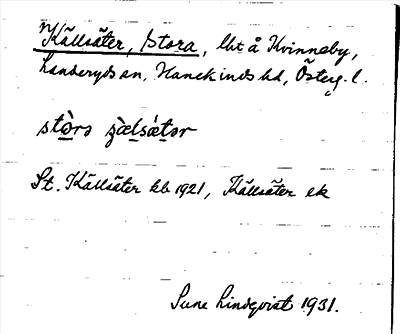 Källsäter, Stora, lht å Kvinneby,
Landeryds sn, Hanekinds hd, Österg. l.
stòrə
St. Källsäter kb 1921, Källsäter ek
Sune Lindqvist 1931.